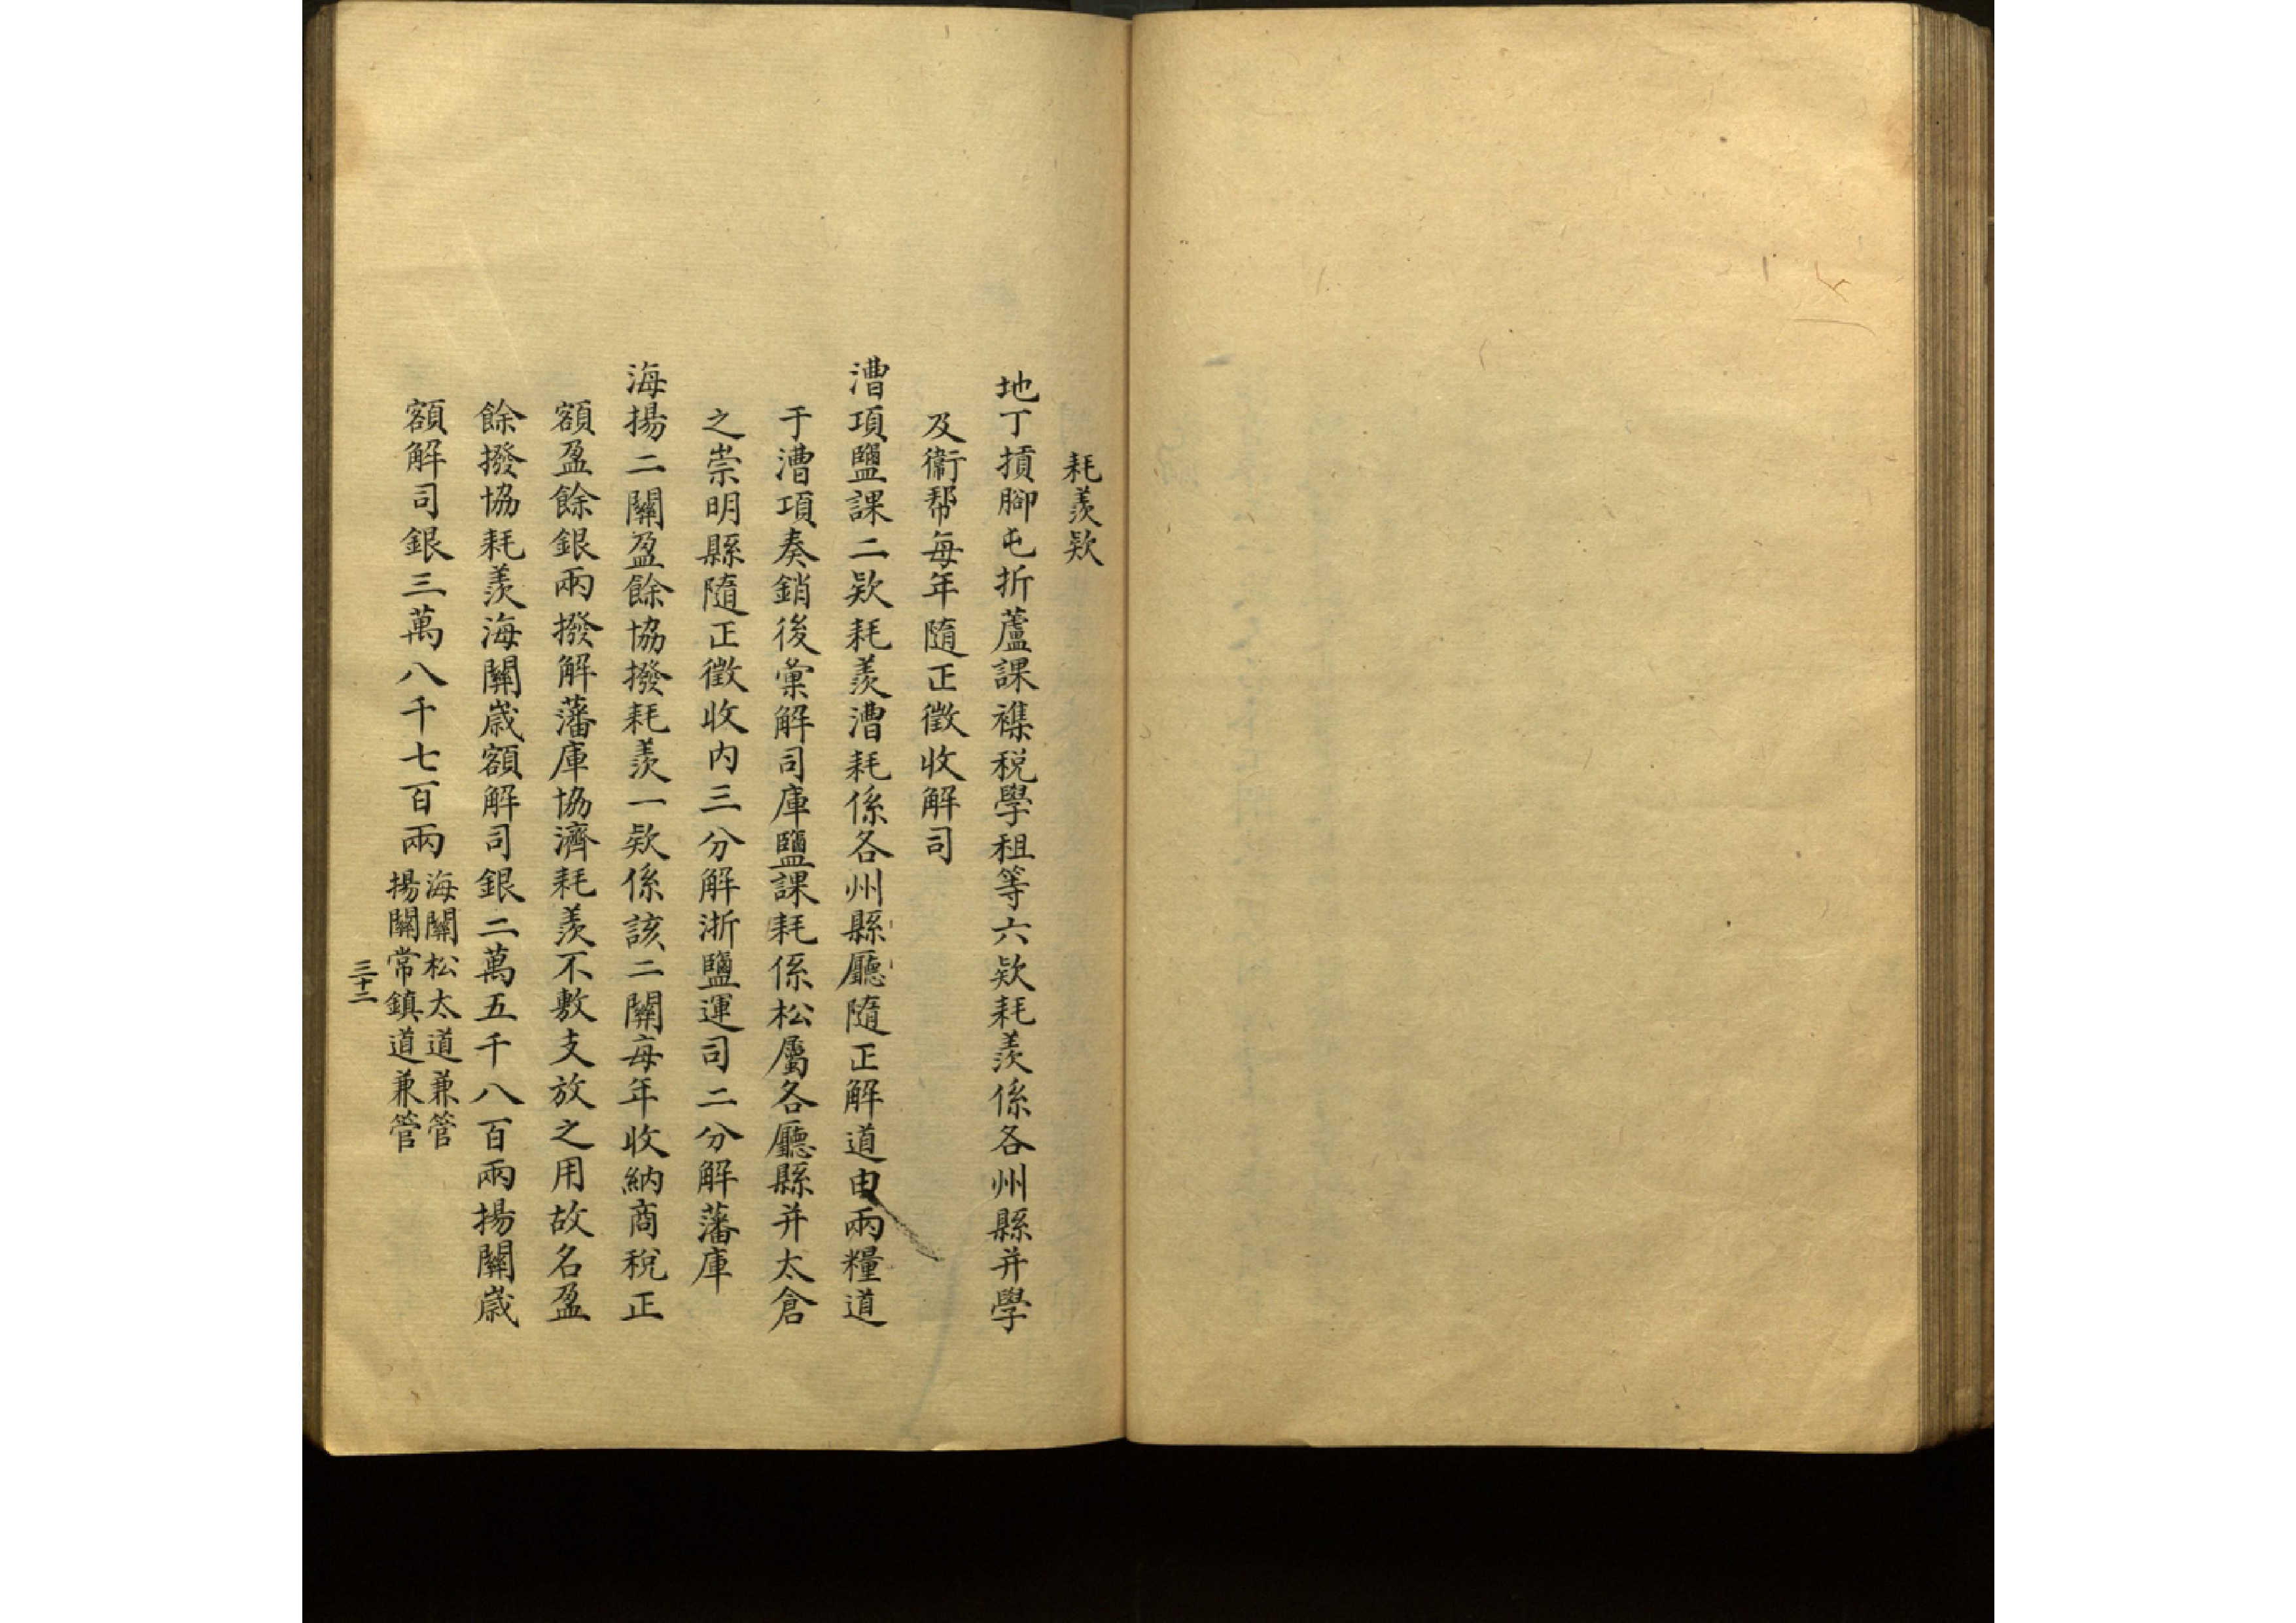 耗羨欵
地丁摃腳屯折蘆課襍税學租等六欵耗羨係各州縣并學
及衞帮每年隨正徵收解司
漕項鹽課二欵耗羨漕耗係各州縣廳隨正解道由兩糧道
于漕項奏銷後彙解司庫鹽課耗係松屬各廳縣并太倉
之崇明縣隨正徵收内三分解浙鹽運司二分解藩庫
海揚二關盈餘協撥耗羨一欵係該二關每年收納商税正
額盈餘銀兩撥解藩庫協濟耗羨不敷支放之用故名盈
餘撥協耗羨海關歲額解司銀二萬五千八百兩揚關歲
額解司銀三萬八千七百兩
海關松太道兼管
揚關常鎮道兼管
三十二